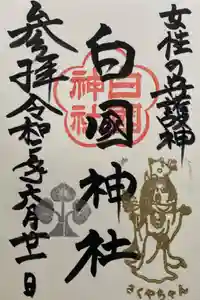 女性の守護神
白國神社
白國
神社
参拝令和二年六月廿一日
さくやちゃん